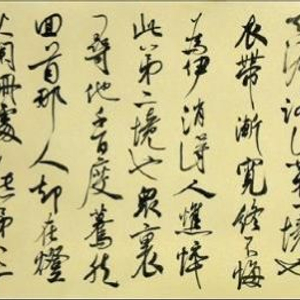 此第一境也
衣帶漸寬終不悔
為伊消得人憔悴
此第二境也眾裏
尋他千百度驀然
回首那人卻在燈
火闌珊處此第三